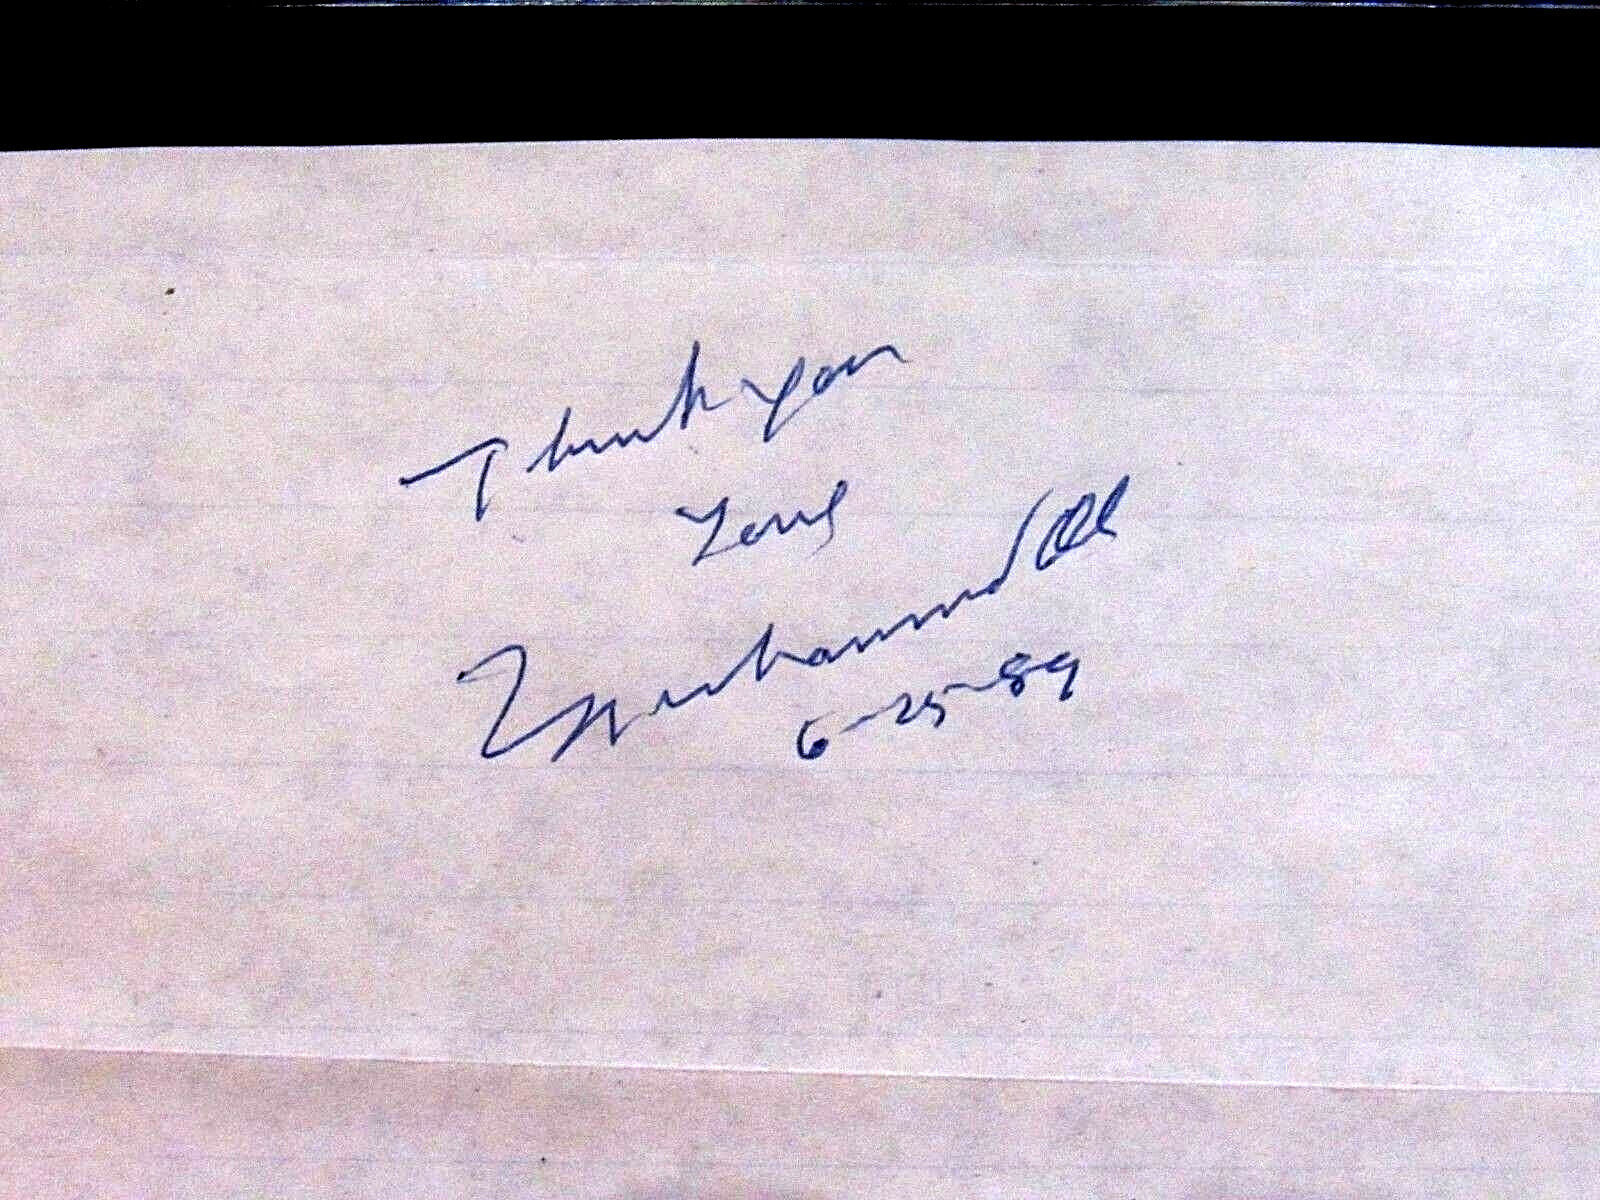 Thank you
Muhammad Ali
6-25-89